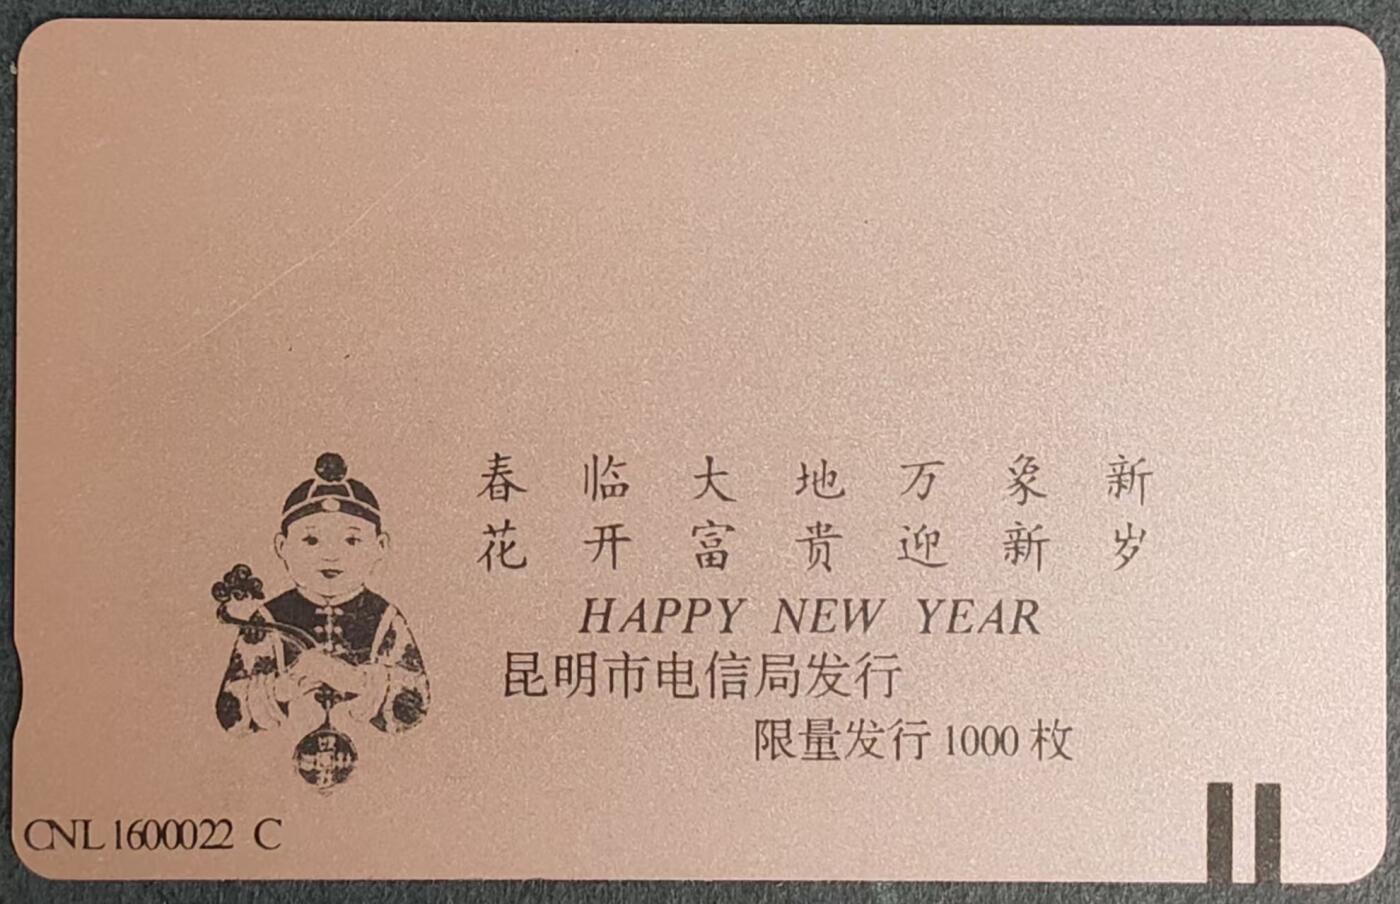 春临大地万象新
花开富贵迎新岁
HAPPY NEW YEAR
昆明市电信局发行
限量发行1000枚
CNL1600022 C